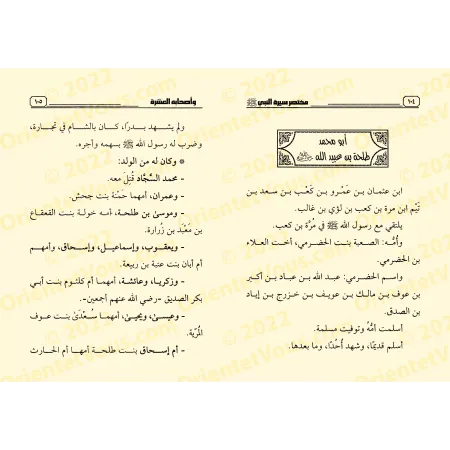 ١٠٤
مختصر سيرة النبي ﷺ
أبو محمد
طلحة بن عبيد الله
ابن عثمان بن عَمْرو بن كَعْب بن سعد بن
تَيْم ابن مرة بن كعب بن لؤي بن غالب.
يلتقي مع رسول الله ﷺ في مُرَّة بن كعب.
وأُمُّه: الصعبة بنت الحضرمي، أخت العلاء
بن الحضرمي.
واسم الحضرمي: عبد الله بن عباد بن أكبر
بن عوف بن مالك بن عويف بن خزرج بن إياد
بن الصدق.
أسلمت أمُّهُ وتوفيت مسلمة.
أسلم قديمًا، وشهد أُحُدًا، وما بعدها.
وأصحابه العشرة
١٠٥
ولم يشهد بدرًا، كان بالشام في تجارة،
وضرب له رسول الله ﷺ بسهمه وأجره.
* وكان له من الولد:
- محمد السَّجَّاد قُتِلَ معه.
- وعمران، أمهما حَمْنة بنت جحش.
- وموسى بن طلحة، أمه خولة بنت القعقاع
بن مَعْبَد بن زُرارة.
- ويعقوب، وإسماعيل، وإسحاق، وأمهم
أم أبان بنت عتبة بن ربيعة.
- وزكريا، وعائشة، أمهما أم كلثوم بنت أبي
بكر الصديق -رضي الله عنهم أجمعين-.
- وعيسى، ويحيى، أمهما سُعْدَى بنت عوف
المُرِّية.
- أم إسحاق بنت طلحة أمها أم الحارث
© 2022
OrientetVous.com